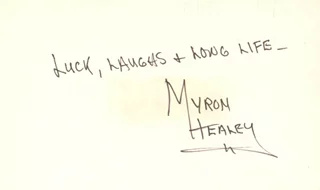 LUCK, LAUGHS + LONG LIFE -
MYRON
HEALEY